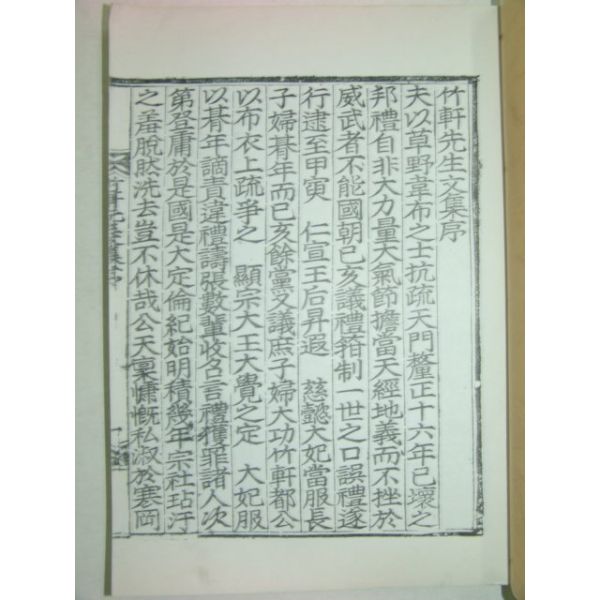 竹軒先生文集序
夫以草野韋布之士抗疏天門釐正十六年已壞之
邦禮自非大力量大氣節擔當天經地義而不挫於
威武者不能國朝己亥議禮箝制一世之口誤禮遂
行逮至甲寅 仁宣王后昇遐 慈懿大妃當服長
子婦朞年而己亥餘黨又議庶子婦大功竹軒都公
以布衣上疏爭之 顯宗大王大覺之定 大妃服
以朞年謫責違禮譸張數輩收召言禮獲罪諸人次
第登庸於是國是大定倫紀始明積幾年宗社玷汙
之羞脫然洗去豈不休哉公天稟慷慨私淑於寒岡